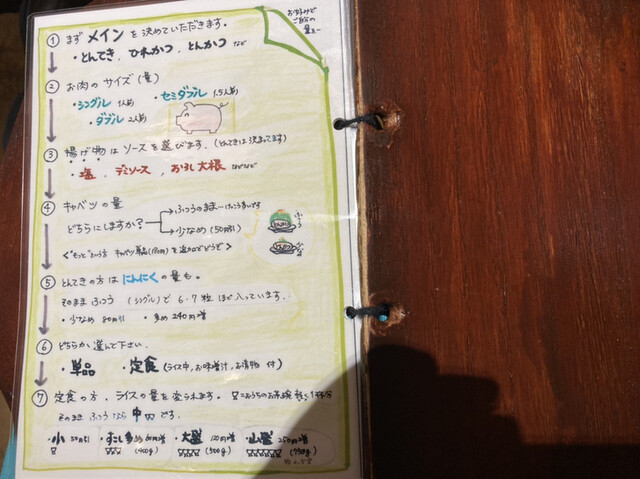 お好みで
ご自分の
① まず メイン を 決めていただきます。
・とんてき, ひれかつ, とんかつ など
② お肉の サイズ (量)
・シングル 1人前 ・セミダブル 1.5人前
・ダブル 2人前
③ 揚げ物 は ソース を 選びます。(とんてきは 決まってます)
・塩, デミソース, おろし大根 などなど
④ キャベツ の 量
どちらに しますか? ふつうのまま…けっこう多いです
少なめ (50円引)
ふつう
少なめ
⑤ とんてき の 方 は にんにく の 量 も。
そのまま ふつう (シングル) で 6・7粒 ほど 入っています.
・少なめ 80円引 ・多め 240円増
⑥ どちらか 選んで 下さい.
・単品 ・定食 (ライス中, お味噌汁, お漬物 付)
⑦ 定食 の 方, ライス の 量を 変えられます。
そのまま ふつう なら 中 です.
・小 50円引 ・すこし多め 60円増 ・大盛 120円増 ・山盛 250円増
(400g) (500g) (750g)